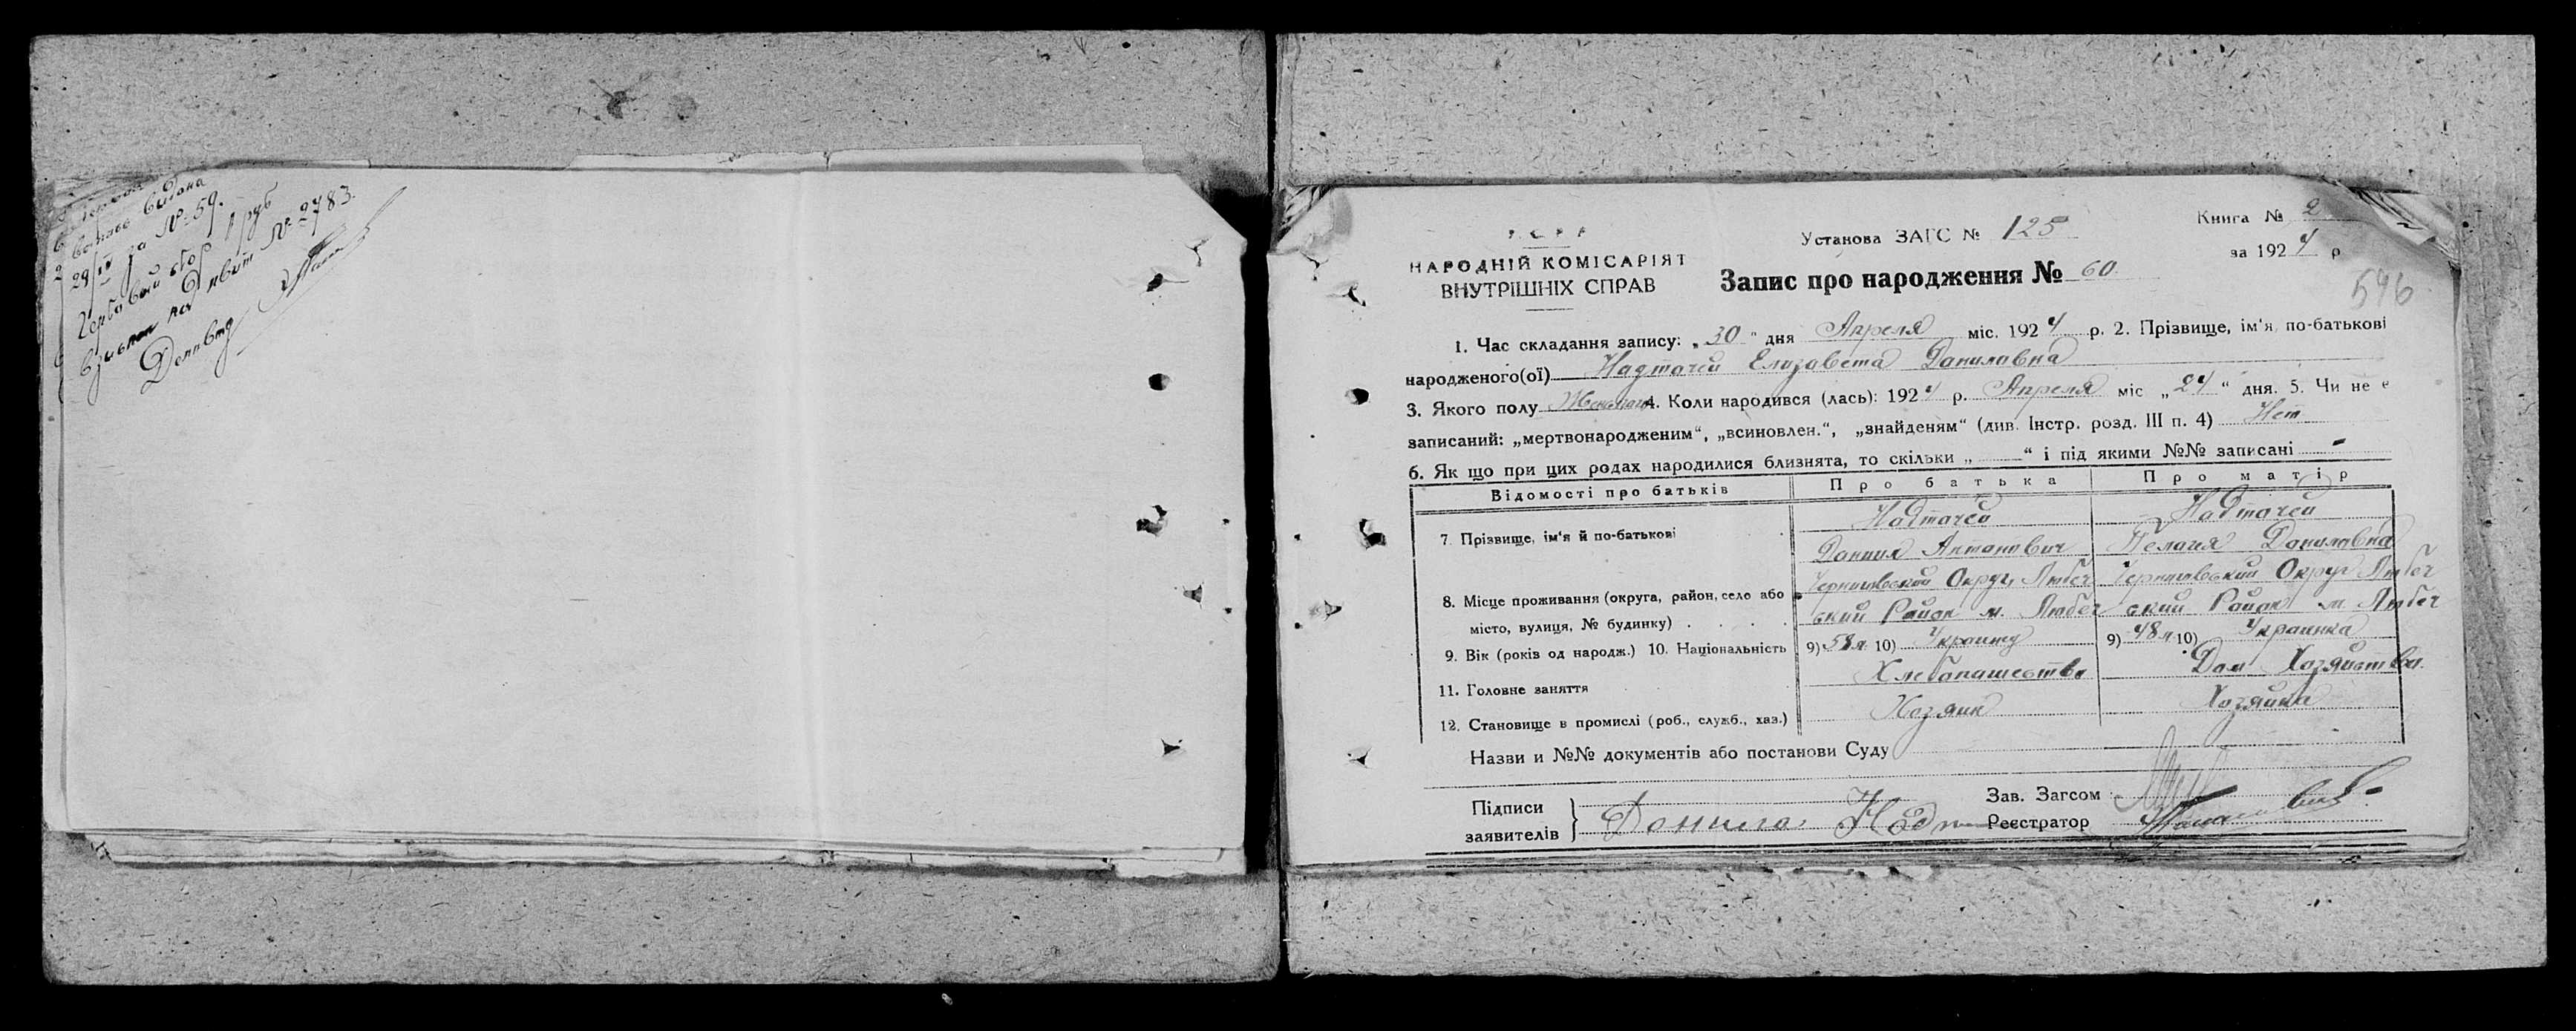 видана
29/IV за № 59.
Гербовый сбор 1 руб
взыскан по квит № 2783.
У С Р Р
НАРОДНІЙ КОМІСАРІЯТ
ВНУТРІШНІХ СПРАВ
Установа ЗАГС № 125
Книга № 2
за 1924 р
Запис про народження № 60
596
1. Час складання запису: „30" дня Апреля міс. 1924 р. 2. Прізвище, ім'я, по-батькові
народженого(ої) Надточей Елизавета Даниловна
3. Якого полу Женскаго 4. Коли народився (лась): 1924 р. Апреля міс „24" дня. 5. Чи не є
записаний: „мертвонародженим", „всиновлен.", „знайденям" (див. Інстр. розд. III п. 4) Нет
6. Як що при цих родах народилися близнята, то скільки „ — " і під якими №№ записані -
Відомості про батьків Про батька Про матір
7. Прізвище, ім'я й по-батькові Надточей Надточей
Данила Антонович Пелагея Даниловна
8. Місце проживання (округа, район, село або Черниговский Округ, Любеч Черниговский Округ Любеч
місто, вулиця, № будинку) . . . . ский Район м. Любеч ский Район м. Любеч
9. Вік (років од народж.) 10. Національність 9) 58 л 10) Украинец 9) 48 л 10) Украинка
11. Головне заняття Хлебопашество Дом Хозяйство
12. Становище в промислі (роб., служб., хаз.) Хозяин Хозяйка
Назви и №№ документів або постанови Суду
Підписи
заявителів
Данила Надт
Зав. Загсом
Реєстратор